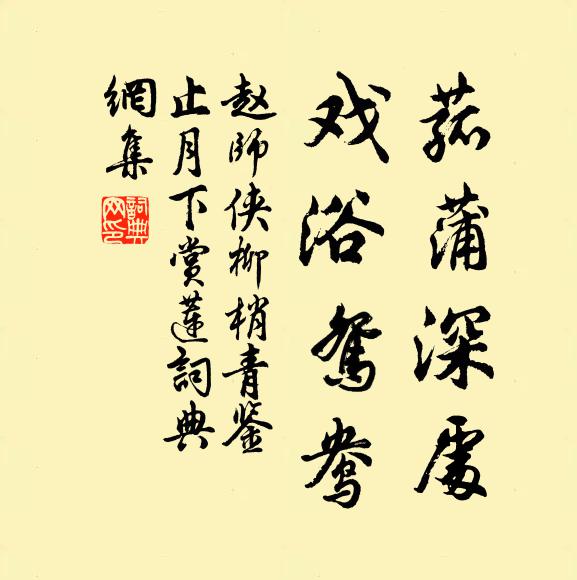 菰蒲深處
戏浴鸳鸯
赵师侠柳梢青鉴
止月下赏莲词典
網集
詞典
网印